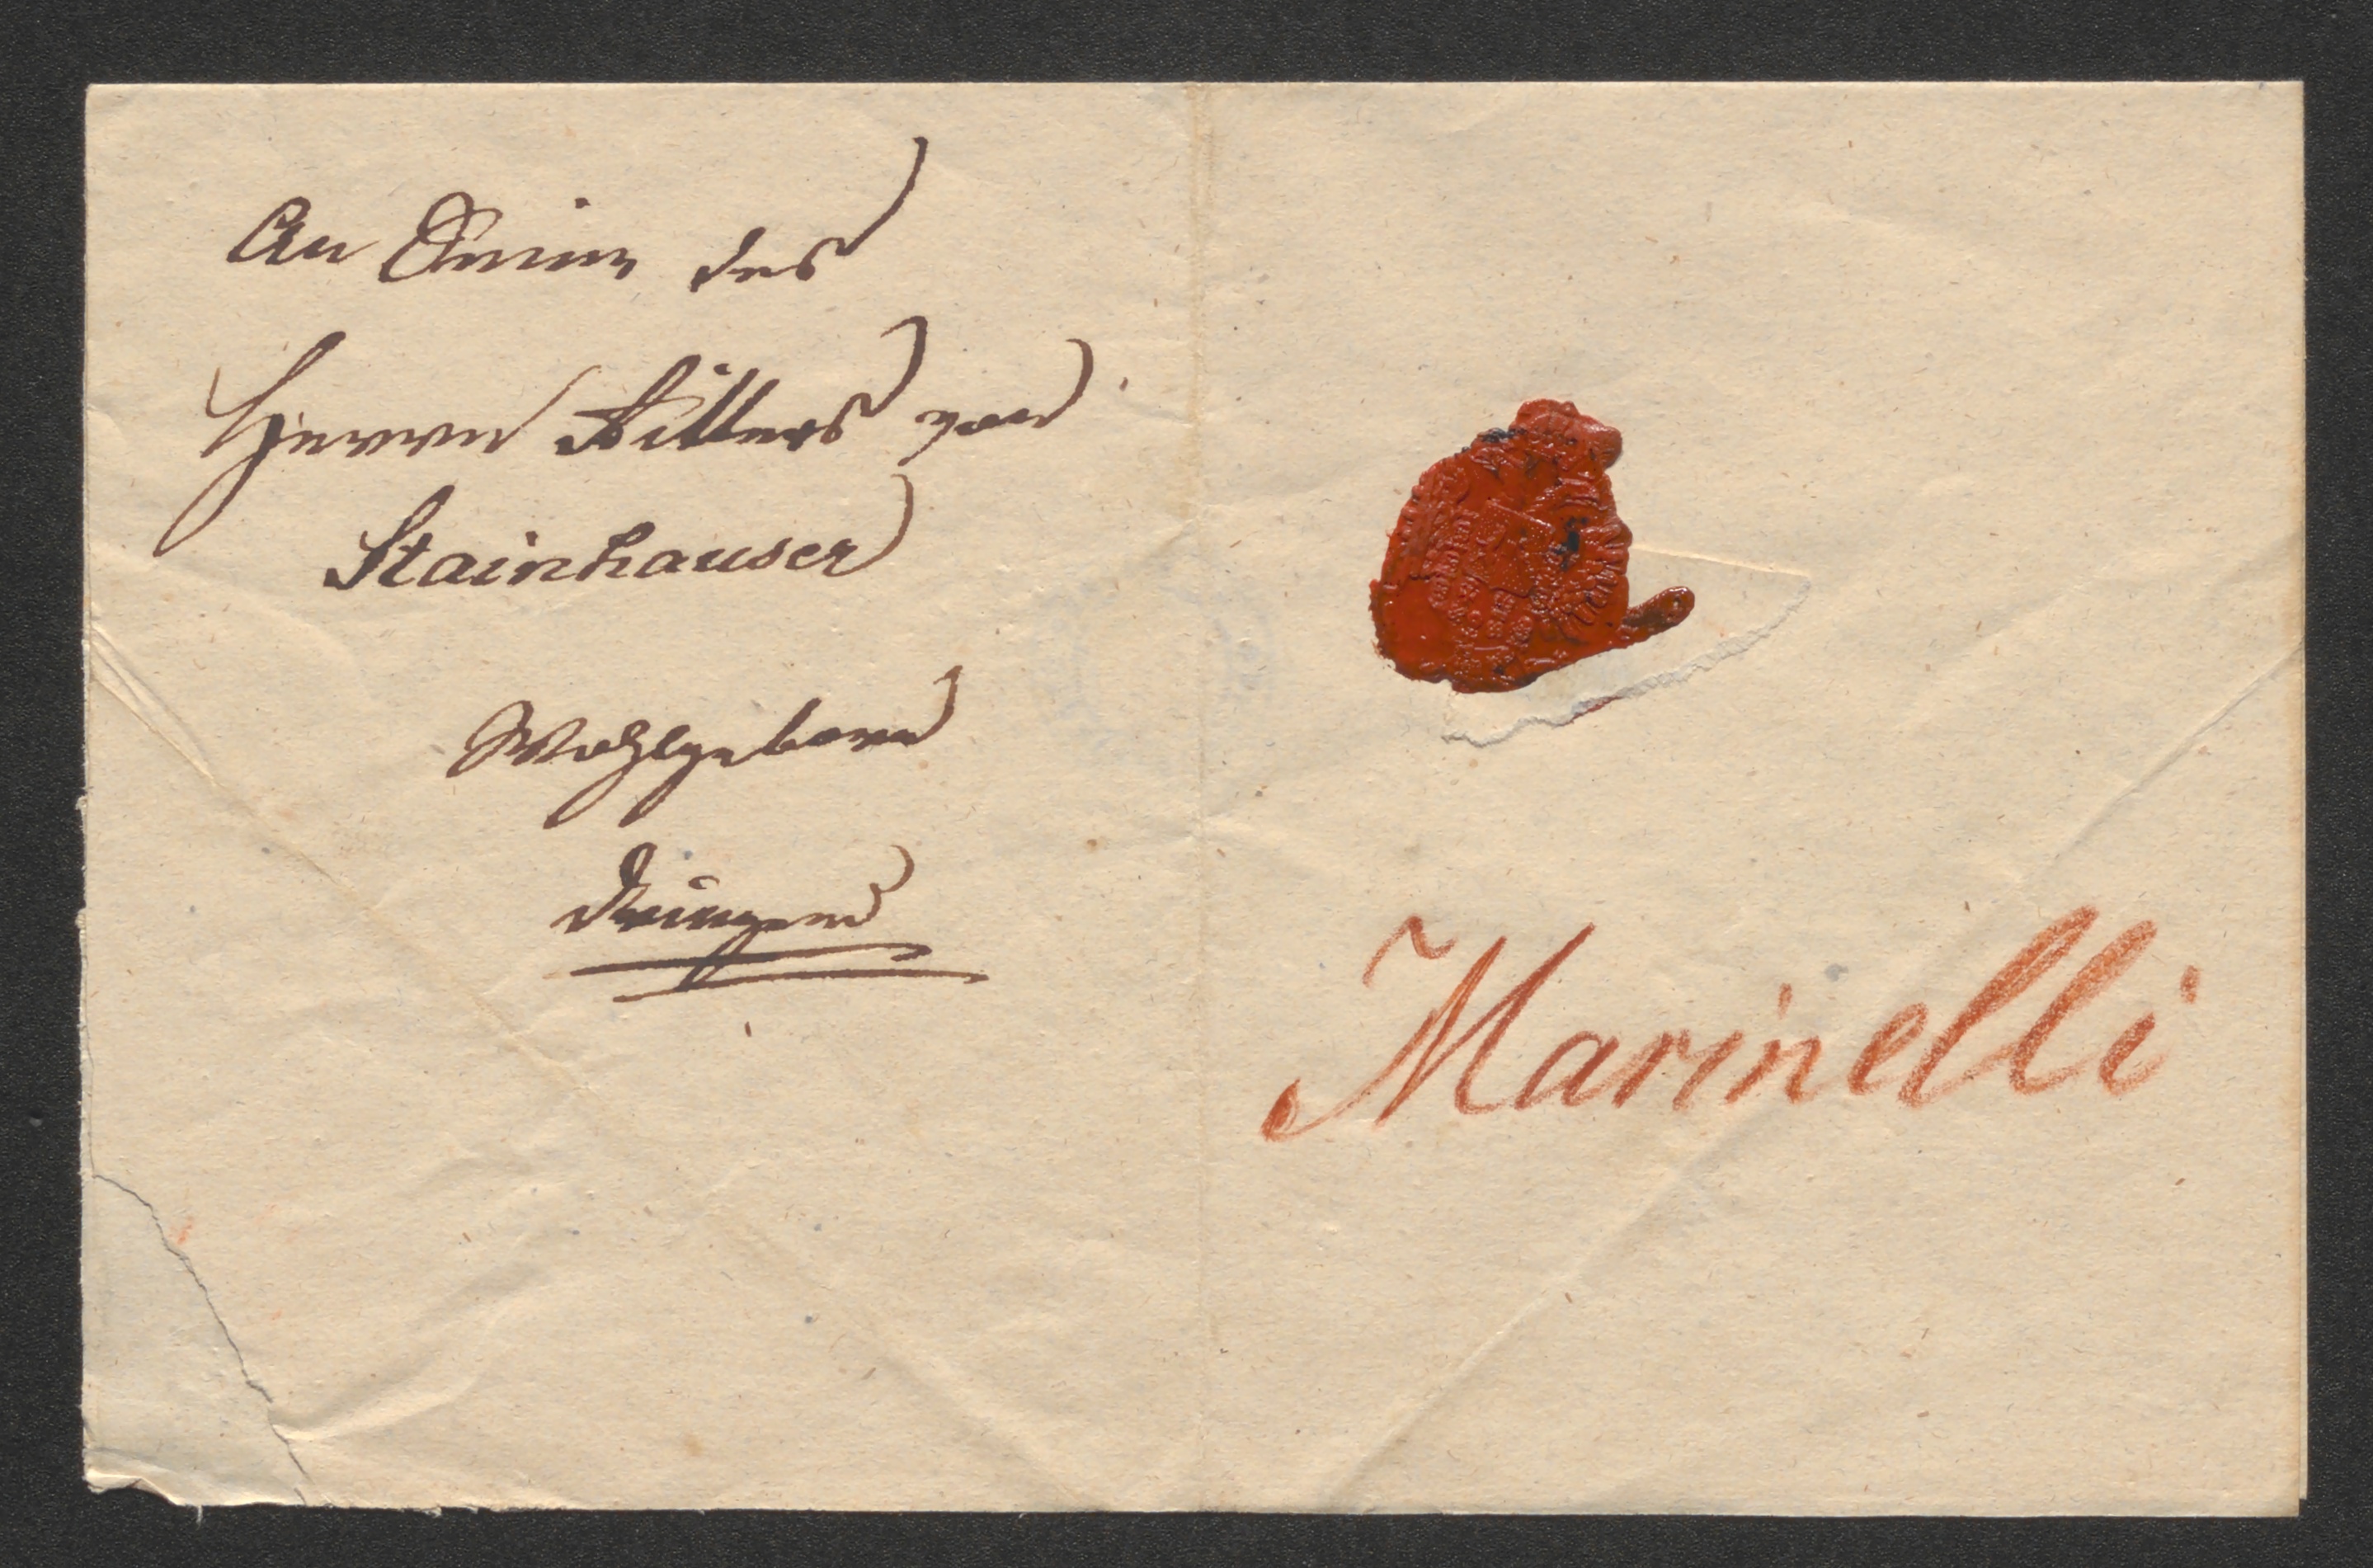 An Seine des
Herrn Ritters von
Stainhauser
Wohlgeborn
dringend
Marinelli